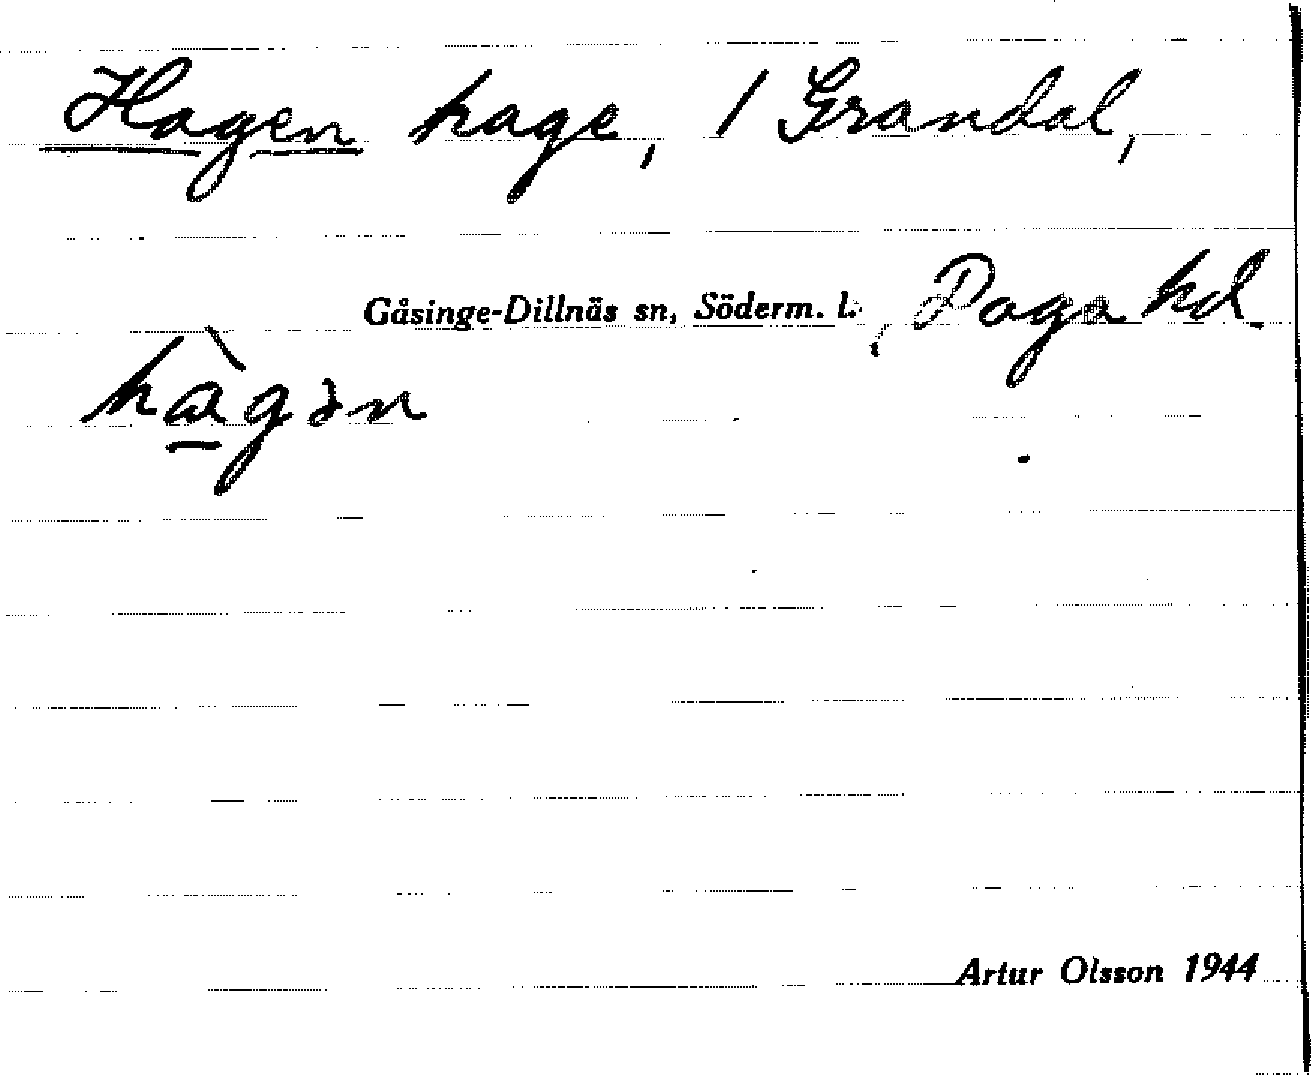 Hagen hage, 1 Grandal,
Gåsinge-Dillnäs sn, Söderm. l., Daga hd
hàgan
Artur Olsson 1944